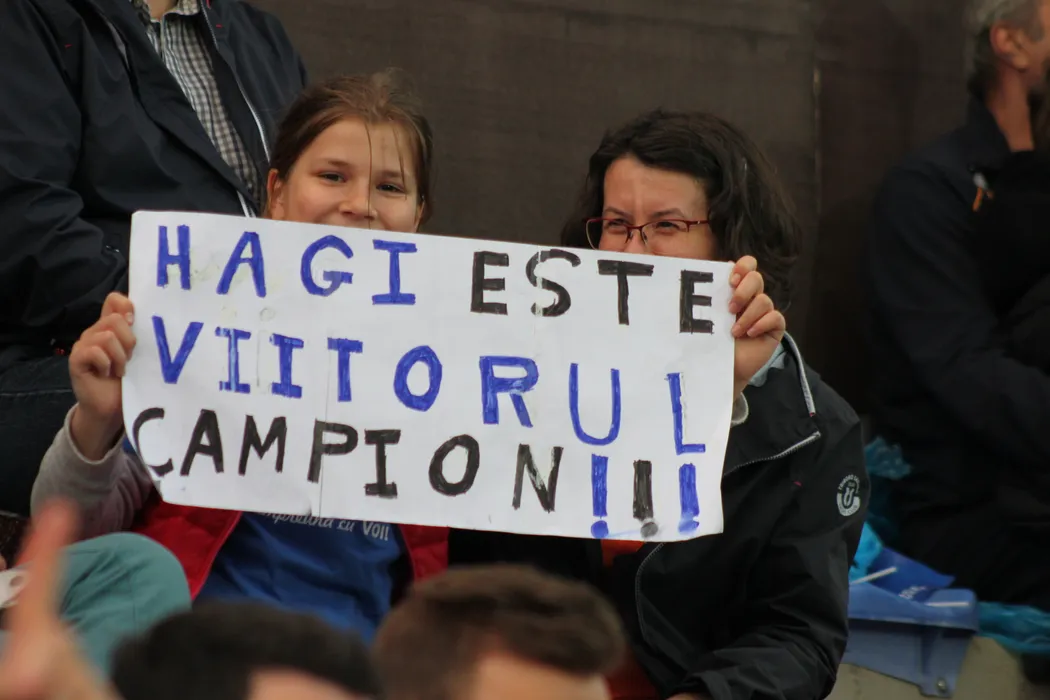 HAGI ESTE
VIITORUL
CAMPION!!!